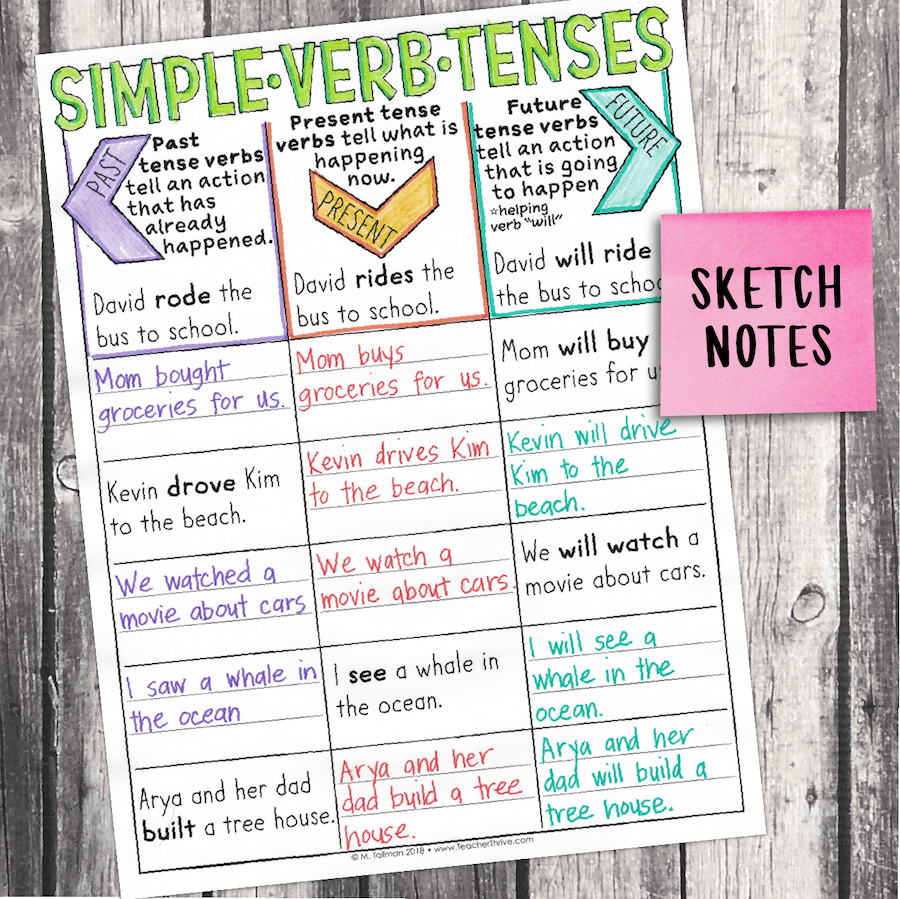 SIMPLE·VERB·TENSES
PAST
Past
tense verbs
tell an action
that has
already
happened.
Present tense
verbs tell what is
happening
now.
PRESENT
Future
tense verbs
tell an action
that is going
to happen
*helping
verb "will"
FUTURE
David rode the
bus to school.
David rides the
bus to school.
David will ride
the bus to
SKETCH
NOTES
Mom bought
groceries for us.
Mom buys
groceries for us.
Mom will buy
groceries for
Kevin drove Kim
to the beach.
Kevin drives Kim
to the beach.
Kevin will drive
Kim to the
beach.
We watched a
movie about cars
We watch a
movie about cars.
We will watch a
movie about cars.
I saw a whale in
the ocean
I see a whale in
the ocean.
I will see a
whale in the
ocean.
Arya and her dad
built a tree house.
Arya and her
dad build a tree
house.
Arya and her
dad will build a
tree house.
© M. Tallman 2018 • www.TeacherThrive.com